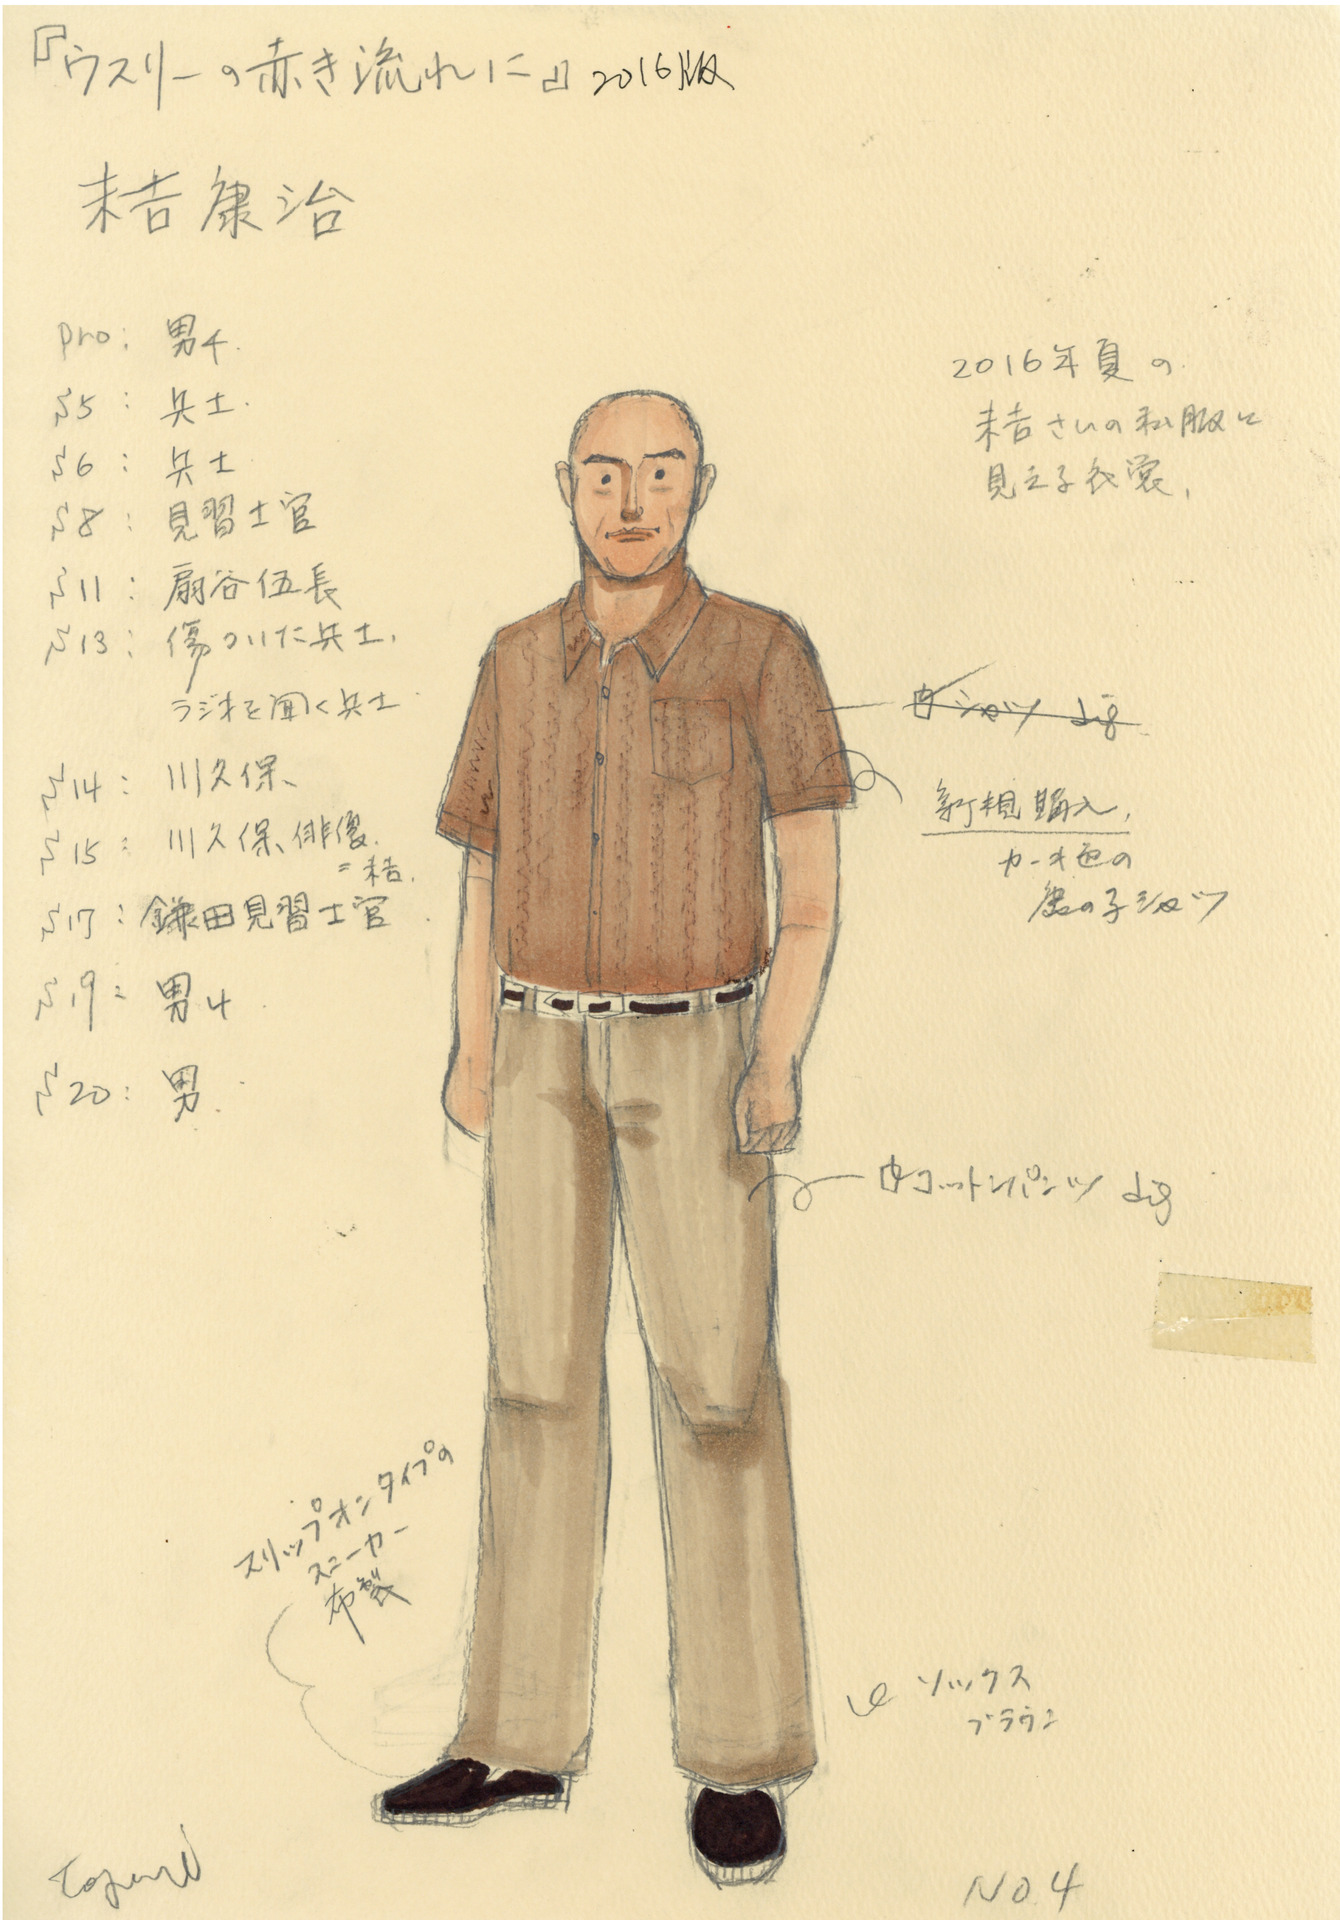 『ウスリーの赤き流れに』 2016版
末吉康治
pro: 男4.
S5: 兵士.
S6: 兵士
S8: 見習士官
S11: 扇谷伍長
S13: 傷ついた兵士.
ラジオを聞く兵士
S14: 川久保、
S15: 川久保、俳優
=末吉.
S17: 鎌田見習士官.
S19: 男4.
S20: 男.
2016年夏の
末吉さんの私服に
見える衣裳.
シャツ dig
新規購入.
カーキ色の
鹿の子シャツ
コットンパンツ dig
スリップオンタイプの
スニーカー
布製
ソックス
ブラウン
NO.4